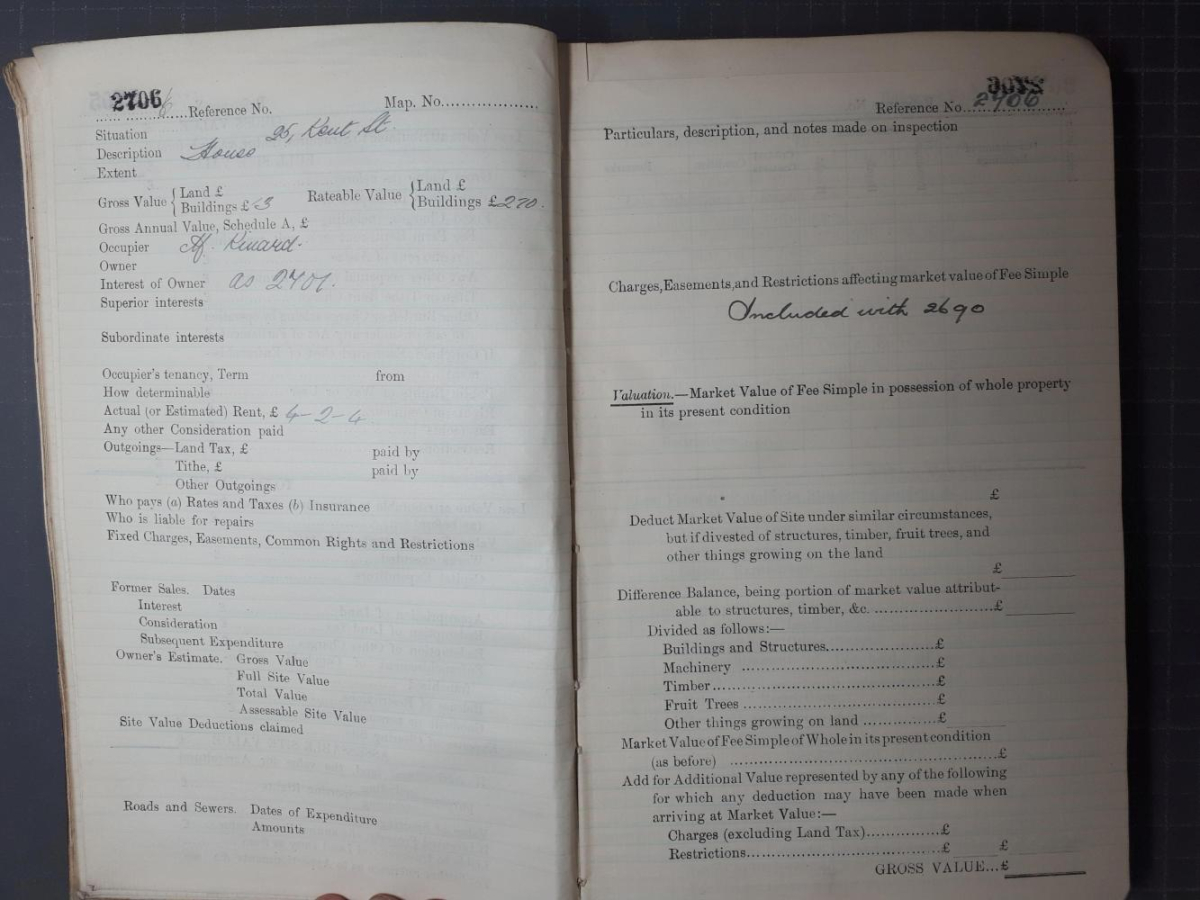 2706
Reference No. Map. No.
Situation 25, Kent St
Description House
Extent
Gross Value { Land £ Rateable Value { Land £
Buildings £ 3 Buildings £2 20.
Gross Annual Value, Schedule A, £
Occupier Kinard.
Owner
Interest of Owner as 2701.
Superior interests
Subordinate interests
Occupier's tenancy, Term from
How determinable
Actual (or Estimated) Rent, £ 4-2-4
Any other Consideration paid
Outgoings—Land Tax, £ paid by
Tithe, £ paid by
Other Outgoings
Who pays (a) Rates and Taxes (b) Insurance
Who is liable for repairs
Fixed Charges, Easements, Common Rights and Restrictions
Former Sales. Dates
Interest
Consideration
Subsequent Expenditure
Owner's Estimate. Gross Value
Full Site Value
Total Value
Assessable Site Value
Site Value Deductions claimed
Roads and Sewers. Dates of Expenditure
Amounts
Reference No. 2706
Particulars, description, and notes made on inspection
Charges, Easements, and Restrictions affecting market value of Fee Simple
Included with 2690
Valuation.—Market Value of Fee Simple in possession of whole property
in its present condition
£
Deduct Market Value of Site under similar circumstances,
but if divested of structures, timber, fruit trees, and
other things growing on the land
£
Difference Balance, being portion of market value attribut-
able to structures, timber, &c. £
Divided as follows:—
Buildings and Structures £
Machinery £
Timber £
Fruit Trees £
Other things growing on land £
Market Value of Fee Simple of Whole in its present condition
(as before) £
Add for Additional Value represented by any of the following
for which any deduction may have been made when
arriving at Market Value:—
Charges (excluding Land Tax) £
Restrictions £ £
GROSS VALUE...£